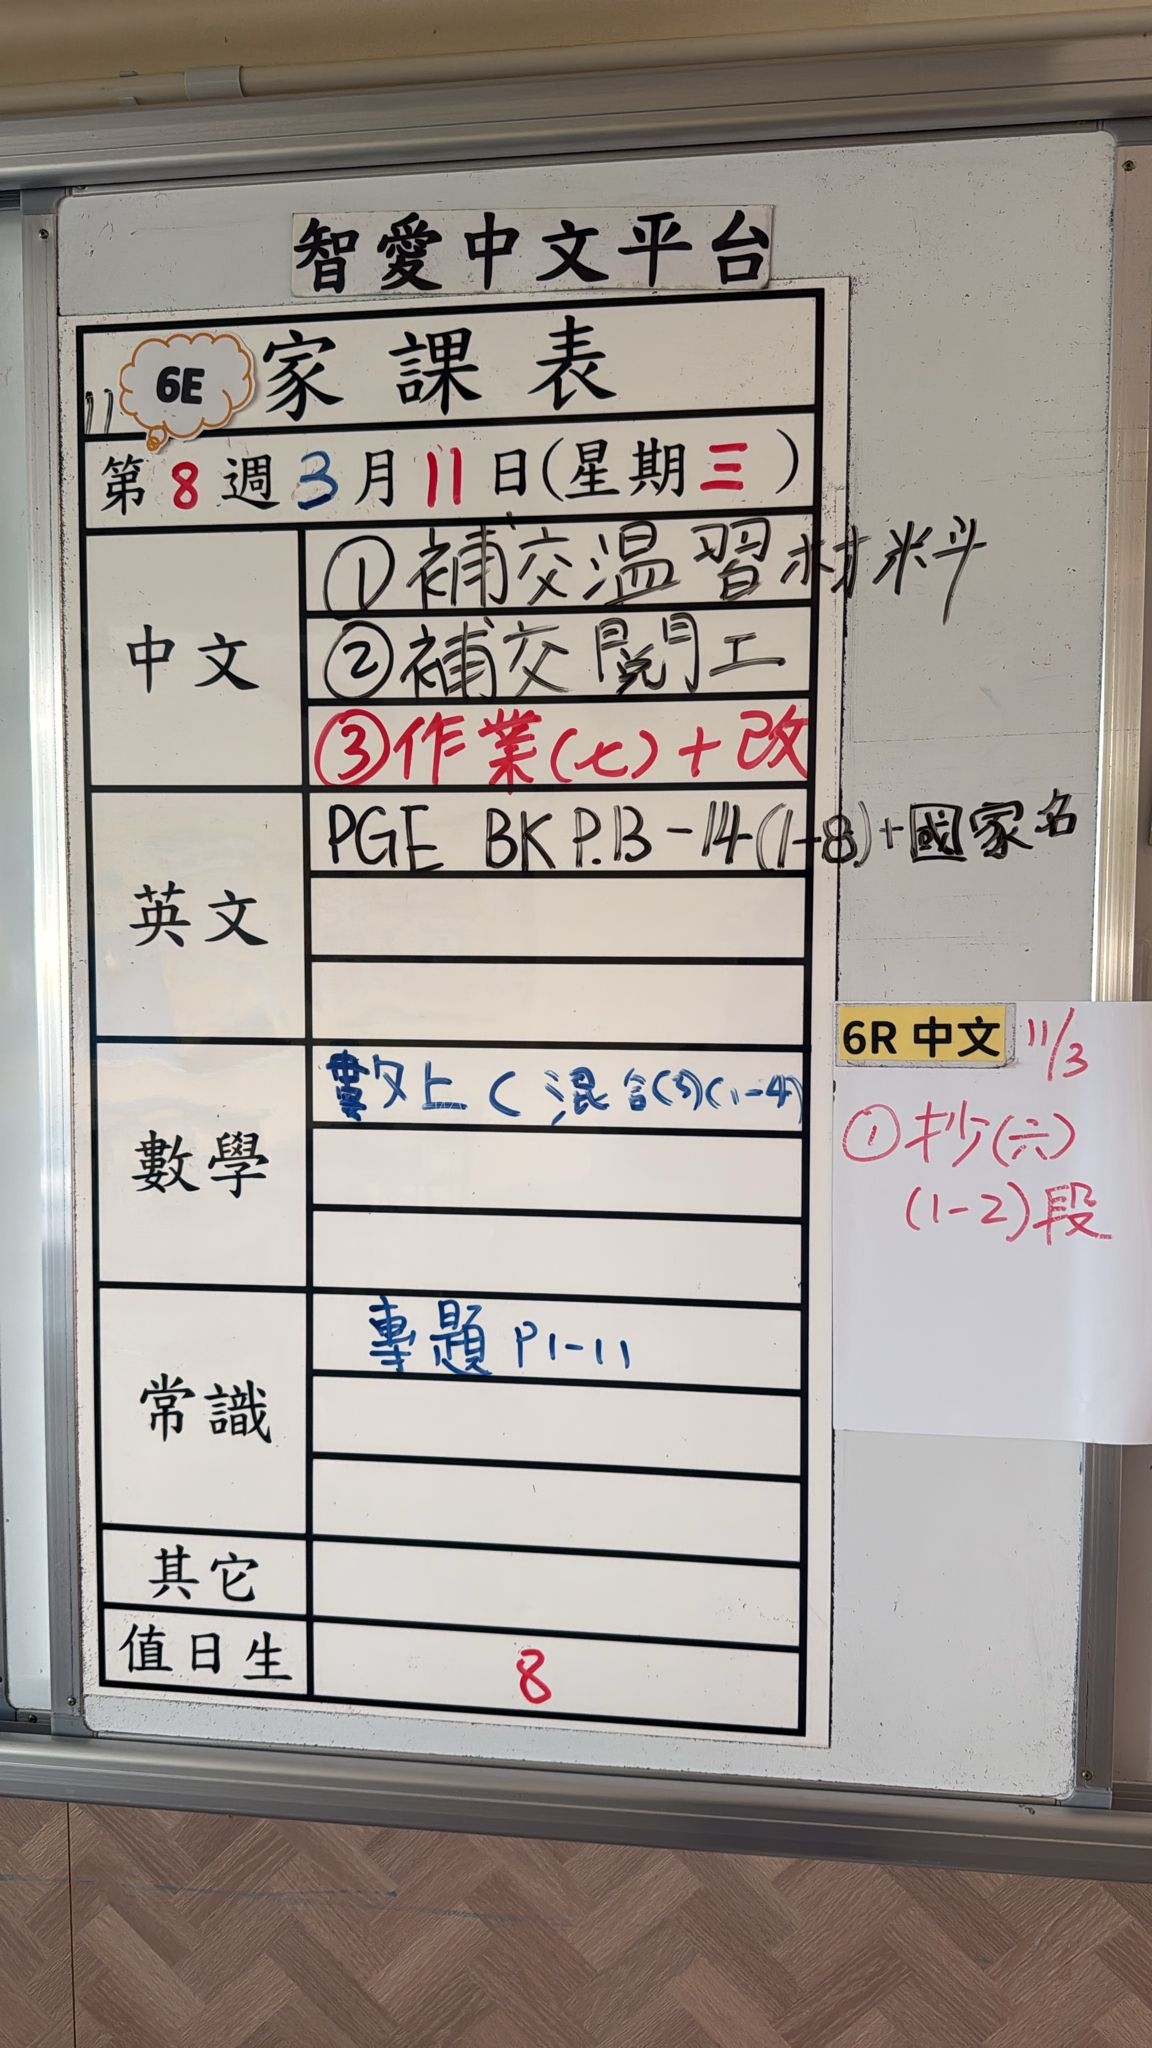 智愛中文平台
6E 家課表
第8週3月11日(星期三)
中文
①補交溫習材料
②補交閱工
③作業(七)+改
英文
PGE BK P.13-14(1-8)+國家名
數學
數上C 混合(3)(1-4)
常識
專題 P1-11
其它
值日生
8
6R 中文 11/3
①抄(六)
(1-2)段